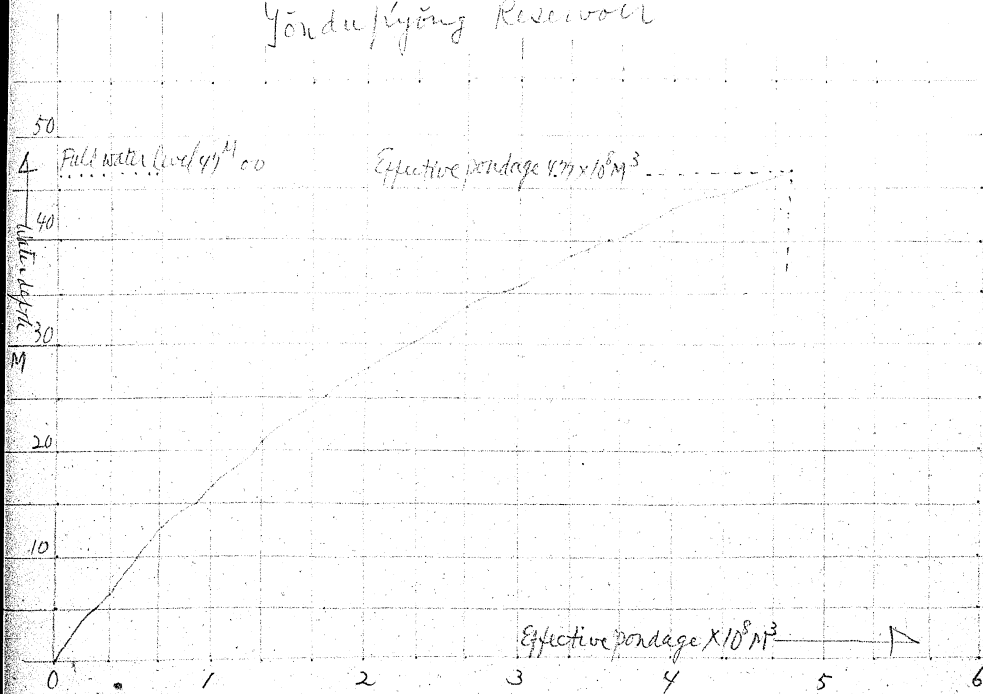 Reservoir
50
Full water level 47ᴹ 00
Effective pondage 4.77 x 10⁸ M³
40
Water depth
30
M
20
10
Effective pondage X 10⁸ M³
0 1 2 3 4 5 6